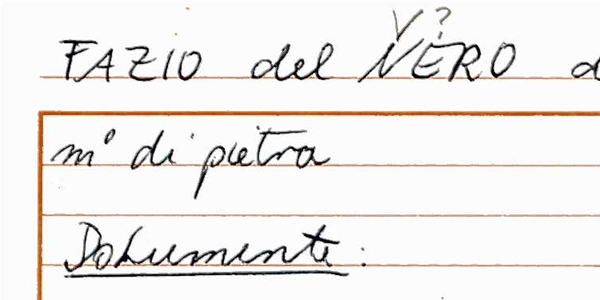 V?
FAZIO del NERO d
m° di pietra
Dokumente: